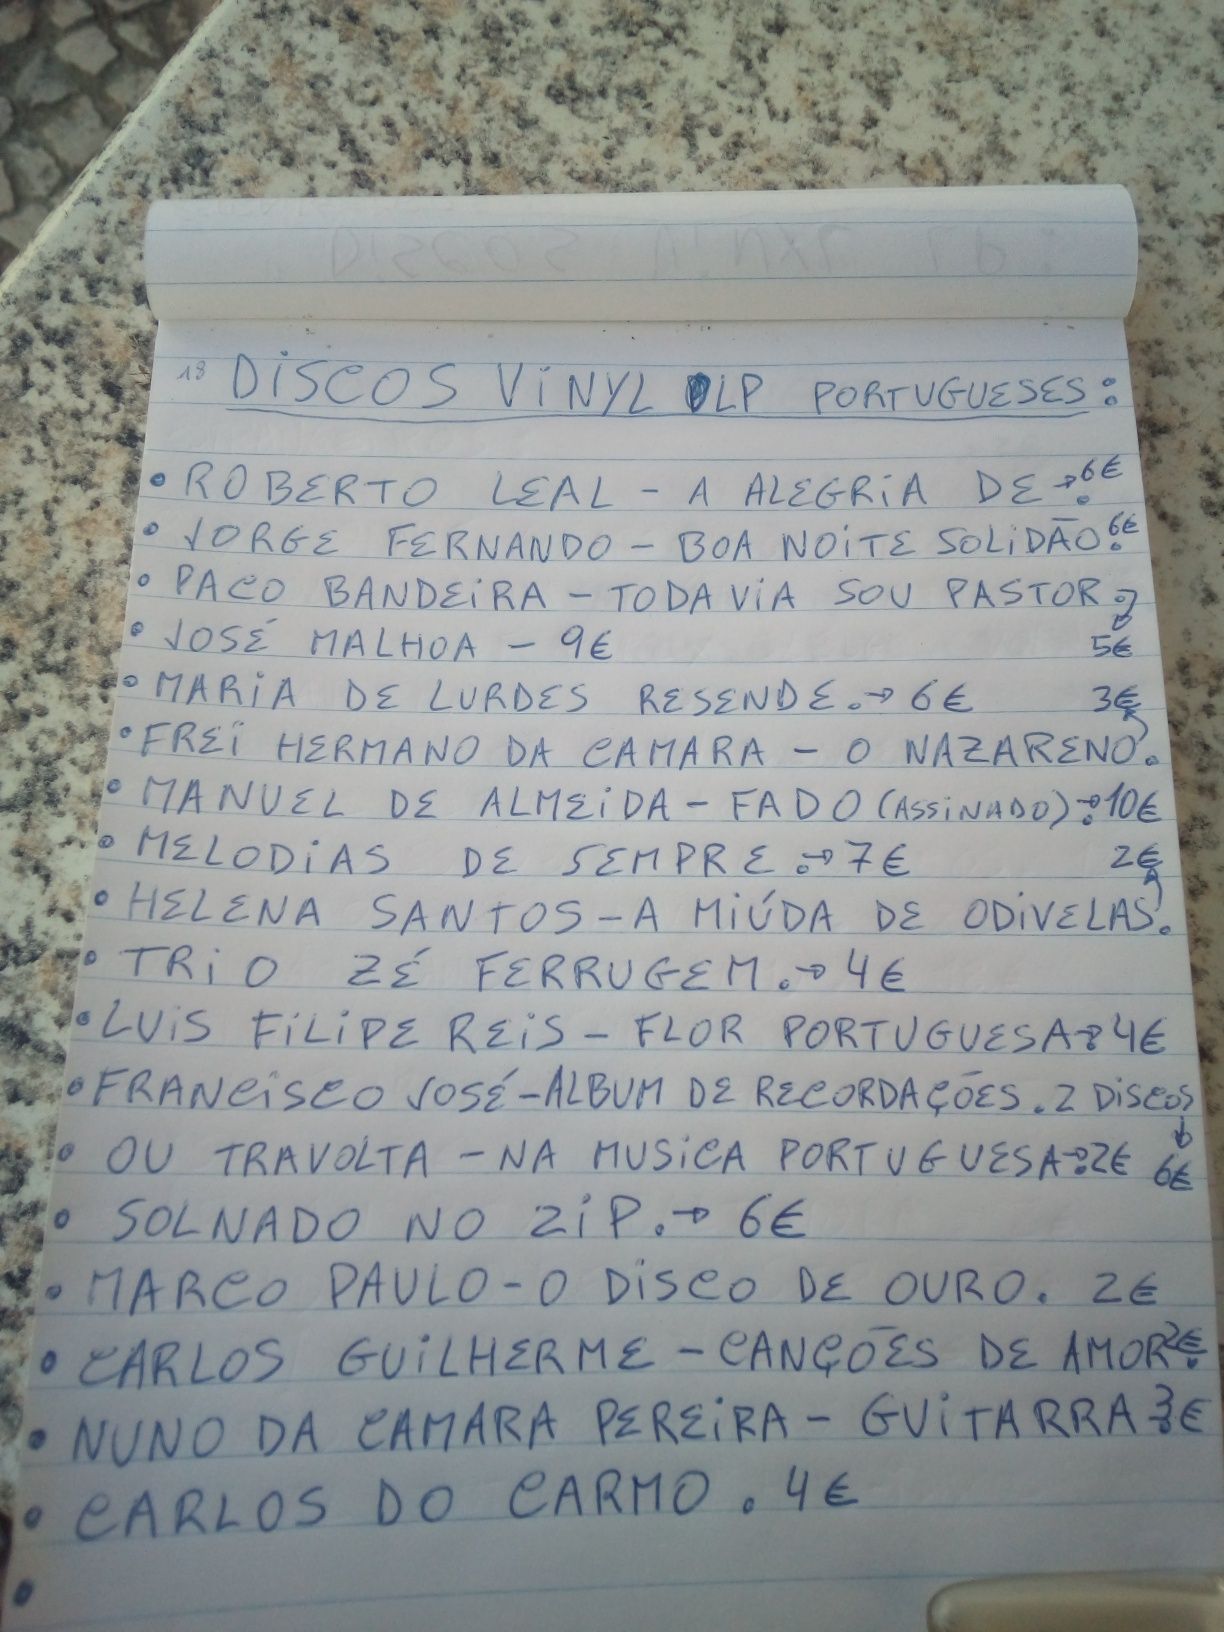 18 DISCOS VINYL LP PORTUGUESES:
• ROBERTO LEAL - A ALEGRIA DE. → 6€
• JORGE FERNANDO - BOA NOITE SOLIDÃO. 6€
• PACO BANDEIRA - TODAVIA SOU PASTOR. →
• JOSÉ MALHOA - 9€ 5€
• MARIA DE LURDES RESENDE. → 6€ 3€
• FREI HERMANO DA CAMARA - O NAZARENO.
• MANUEL DE ALMEIDA - FADO (ASSINADO). → 10€
• MELODIAS DE SEMPRE. → 7€ 2€
• HELENA SANTOS - A MIÚDA DE ODIVELAS.
• TRIO ZÉ FERRUGEM. → 4€
• LUIS FILIPE REIS - FLOR PORTUGUESA. → 4€
• FRANCISCO JOSÉ - ALBUM DE RECORDAÇÕES. 2 DISCOS
• OU TRAVOLTA - NA MUSICA PORTUGUESA. → 2€ 6€
• SOLNADO NO ZIP. → 6€
• MARCO PAULO - O DISCO DE OURO. 2€
• CARLOS GUILHERME - CANÇÕES DE AMOR. 2€
• NUNO DA CAMARA PEREIRA - GUITARRA 3€
• CARLOS DO CARMO. 4€
•